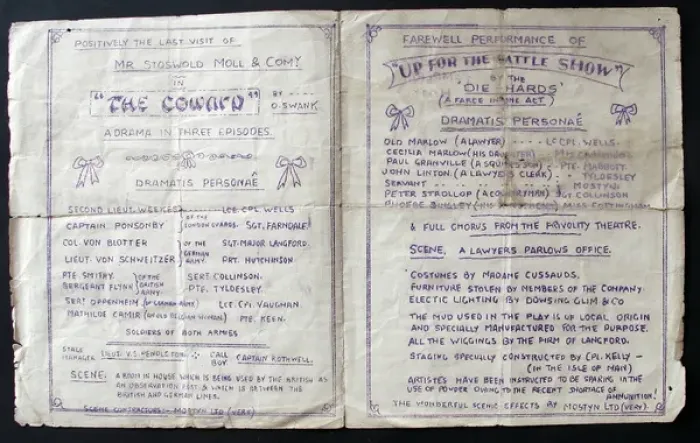 POSITIVELY THE LAST VISIT OF
MR STOSWOLD MOLL & COMY
IN
"THE COWARD" BY ----
O. SWANK.
A DRAMA IN THREE EPISODES.
DRAMATIS PERSONAÉ
SECOND LIEUT. WEEKES LCE. CPL. WELLS
CAPTAIN PONSONBY OF THE LONDON GUARDS. SGT. FARNDALE.
COL. VON BLOTTER OF THE GERMAN ARMY. SGT-MAJOR LANGFORD.
LIEUT. VON SCHWEITZER PRT. HUTCHINSON.
PTE. SMITHY. OF THE BRITISH ARMY SERT. COLLINSON.
SERGEANT FLYNN PTE. TYLDESLEY.
SERT OPPENHEIM (OF GERMAN ARMY) LCE. CPL. VAUGHAN.
MATHILDE CAMIR (AN OLD BELGIAN WOMAN) PTE. KEEN.
SOLDIERS OF BOTH ARMIES
STAGE MANAGER LIEUT. V.S. PENDLETON CALL BOY CAPTAIN ROTHWELL.
SCENE: A ROOM IN HOUSE WHICH IS BEING USED BY THE BRITISH AS
AN OBSERVATION POST & WHICH IS BETWEEN THE
BRITISH AND GERMAN LINES.
SCENE CONTRACTORS:- MOSTYN LTD (VERY)
FAREWELL PERFORMANCE OF
"UP FOR THE BATTLE SHOW"
BY THE
'DIE HARDS'
(A FARCE IN ONE ACT)
DRAMATIS PERSONAÉ
OLD MARLOW (A LAWYER) ---- LCE CPL. WELLS.
CECILIA MARLOW (HIS DAUGHTER) MISS
PAUL GRANVILLE (A SQUIRE'S SON) PTE.
JOHN LINTON. (A LAWYERS CLERK) TYLDESLEY
SERVANT MOSTYN
PETER STROLLOP (A COUNTRYMAN) SGT COLLINSON
PHOEBE BINGLEY MISS
& FULL CHORUS FROM THE FRIVOLITY THEATRE.
SCENE, A LAWYERS PARLOWS OFFICE.
COSTUMES BY MADAME CUSSAUDS.
FURNITURE STOLEN BY MEMBERS OF THE COMPANY
ELECTRIC LIGHTING BY DOWSING GLIM & CO
THE MUD USED IN THE PLAY IS OF LOCAL ORIGIN
AND SPECIALLY MANUFACTURED FOR THE PURPOSE.
ALL THE WIGGINGS BY THE FIRM OF LANGFORD.
STAGING SPECIALLY CONSTRUCTED BY CPL. KELLY —
(IN THE ISLE OF MAN)
ARTISTES HAVE BEEN INSTRUCTED TO BE SPARING IN THE
USE OF POWDER OWING TO THE RECENT SHORTAGE OF
AMMUNITION!
THE WONDERFUL SCENIC EFFECTS BY MOSTYN LTD (VERY)